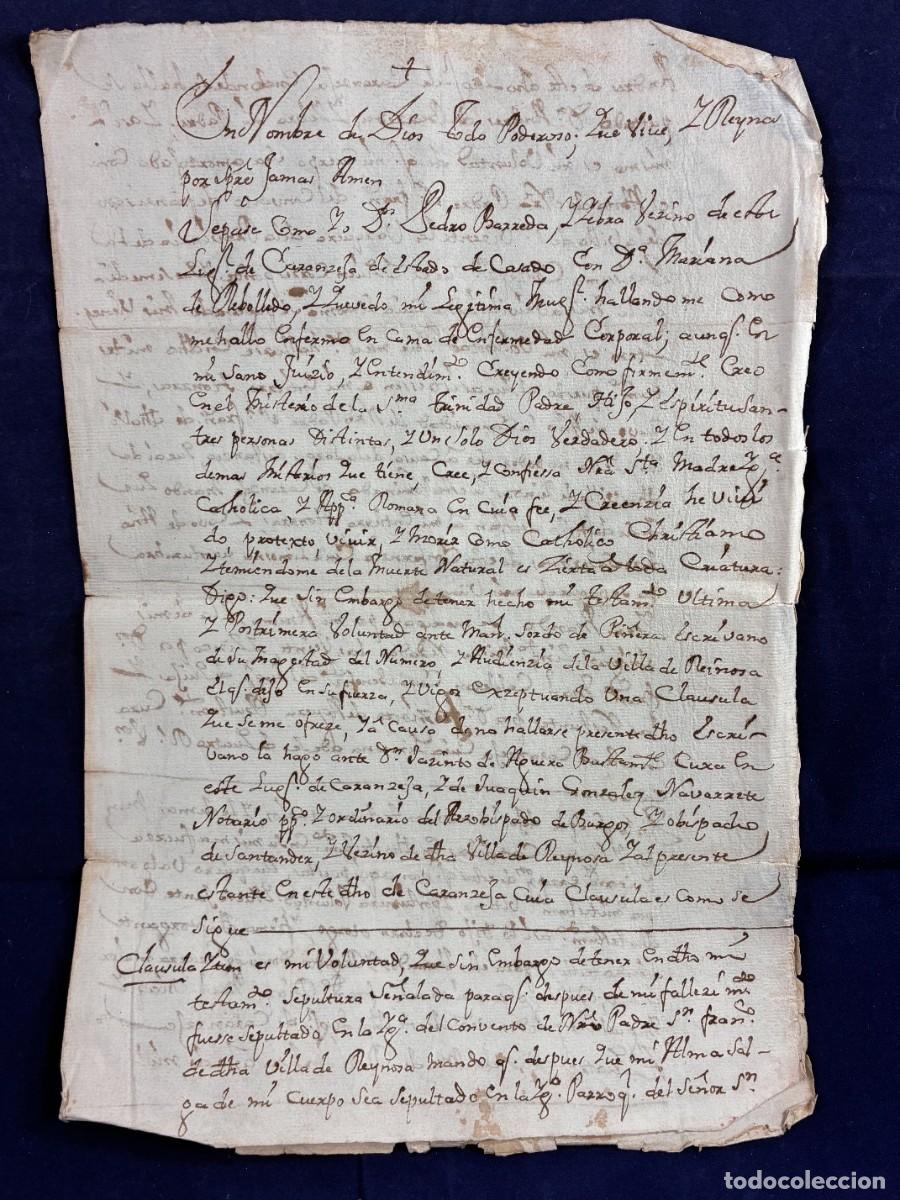 +
En Nombre de Dios todo Poderoso, Que vive, Y Reyna
por spre Jamas Amen
Sepase Como Yo Dn. Pedro Barreda, Y Vezino de este
Lugr. de Caranzeja de estado de Casado Con Da. Mariana
de Rebolledo, Y Quevedo mi Legitima Mugr. hallandome como
me hallo Enfermo En Cama de Enfermedad Corporal; aunqe. En
mi Sano Juizio, Y Entendimto. Creyendo Como firmemte. Creo
En el Misterio de la Sma. trinidad Padre, Hijo Y Espiritu San-
tres personas Distintas, Y Un Solo Dios Verdadero: Y En todos los
demas Misterios Que tiene, Cree, Y Confiessa Nra. Sta. Madre Yga.
Catholica Y Appca. Romana En Cuia fee, Y Creenzia he Vivi
do protexto vivir, Y Morir Como Catholico Christiano
Y temiendome de la Muerte Natural es Zierta a toda Criatura:
Digo: Que Sin Embargo de tener hecho mi testamto. Ultima
Y Postrimera Voluntad ante Manl. Sordo de Piñera Escrivano
de Su Magestad del Numero, Y Audienzia de la Villa de Reinosa
El qe. dejo En Su fuerza, Y Vigor exzeptuando Una Clausula
Que Se me ofreze, Y a Causa de no hallarse presente dho Escri-
vano la hago ante Dn. Jazinto de Aguero Bustamte. Cura En
este Lugr. de Caranzeja, Y de Juaquin Gonzalez Navarrete
Notario ppco. Y ordinario del Arzobispado de Burgos, Y obispado
de Santander, Y Vezino de dha Villa de Reynosa Y al presente
estante En este dho de Caranzeja Cuia Clausula es Como Se
Sigue
Clausula Yten es mi Voluntad, Que Sin Embargo de tener En dho mi
testamto. Sepultura Señalada para qe. despues de mi fallezimto.
fuesse Sepultado En la Yga. del Convento de Nro Padre Sn. franco.
de dha Villa de Reynosa mando qe. despues Que mi Alma Sal-
ga de mi Cuerpo Sea Sepultado En la Yga. Parroql. del Señor Sn
todocoleccion